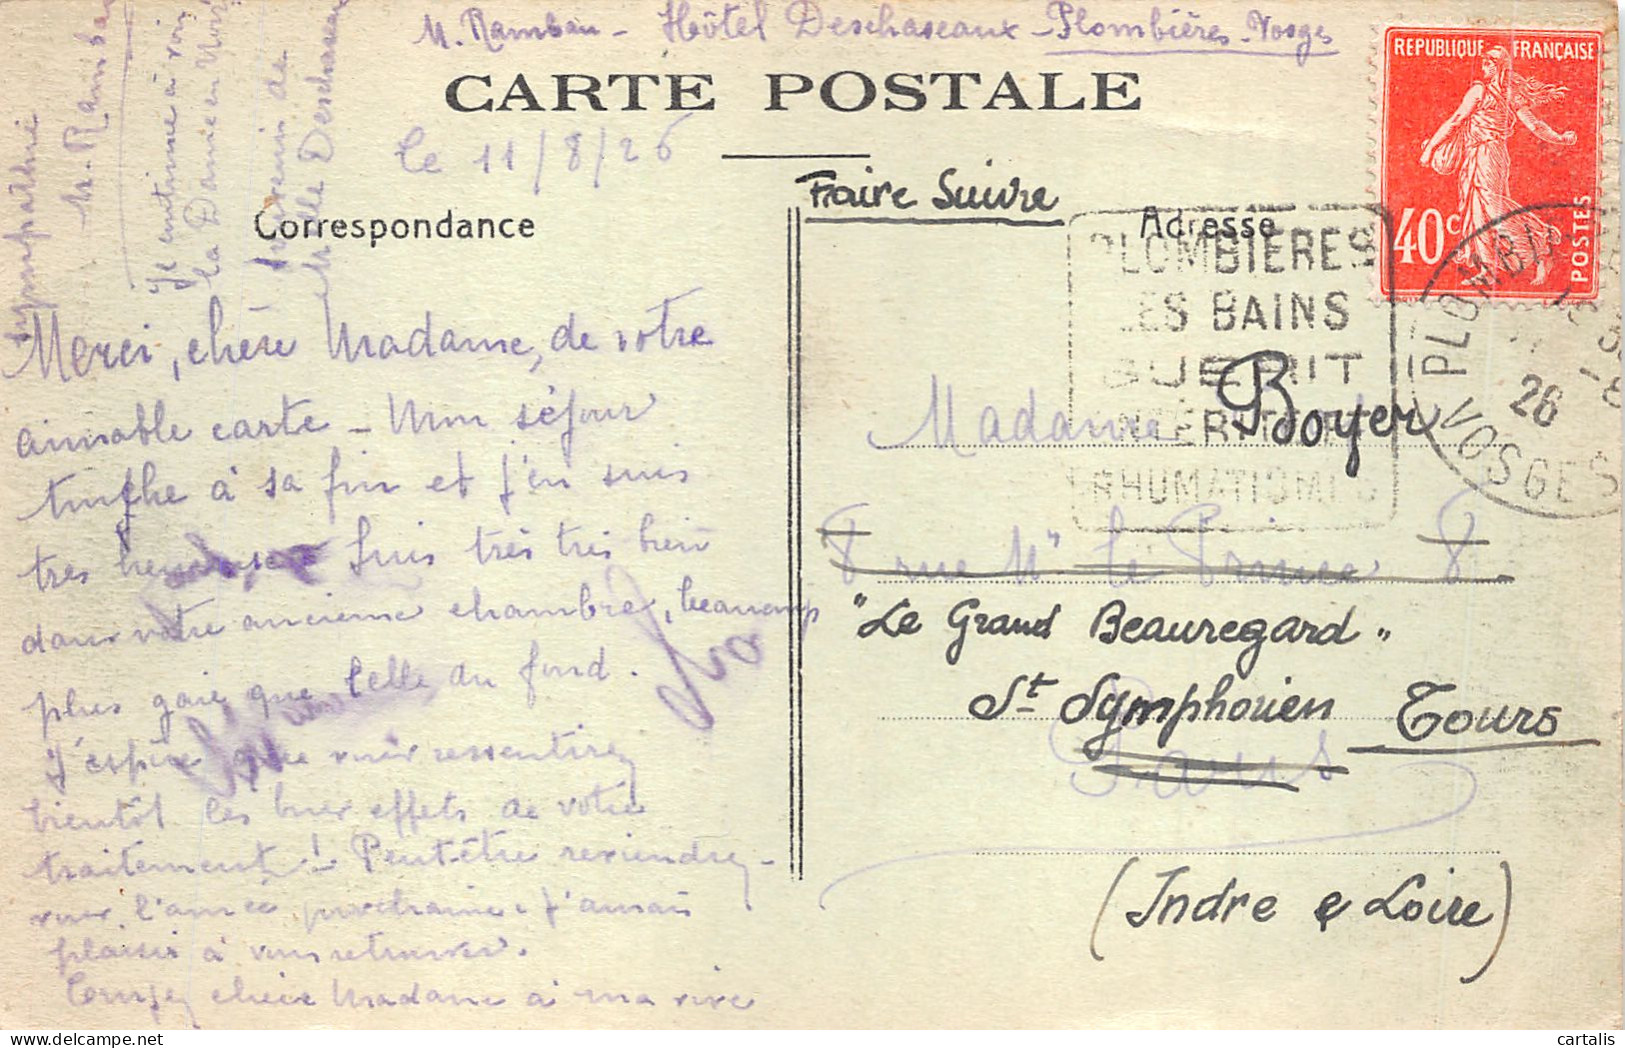 M. Rambau - Hôtel Deschaseaux - Plombières - Vosges
CARTE POSTALE
le 11/8/26
Correspondance
Merci, chère Madame, de votre
aimable carte - Mon séjour
touche à sa fin et j'en suis
très heureuse. Suis très très bien
dans votre ancienne chambre, beaucoup
plus gaie que celle du fond.
J'espère que vous ressentirez
bientôt les bons effets de votre
traitement ! Peut-être reviendrez-
vous l'année prochaine. J'aurais
plaisir à vous retrouver.
Croyez chère Madame à ma vive
sympathie
M. Rambau
Je continue à voir
la Dame en Noir
de
Mlle Deschaseaux
Faire Suivre
Adresse
Madame Boyer
8 rue Mr le Prince 8
"Le Grand Beauregard"
St Symphorien Tours
Paris
(Indre & Loire)
REPUBLIQUE FRANÇAISE
40c
POSTES
PLOMBIERES
LES BAINS
GUERIT
ENTERITE
RHUMATISMES
PLOMBI
26
VOSGES
cartalis